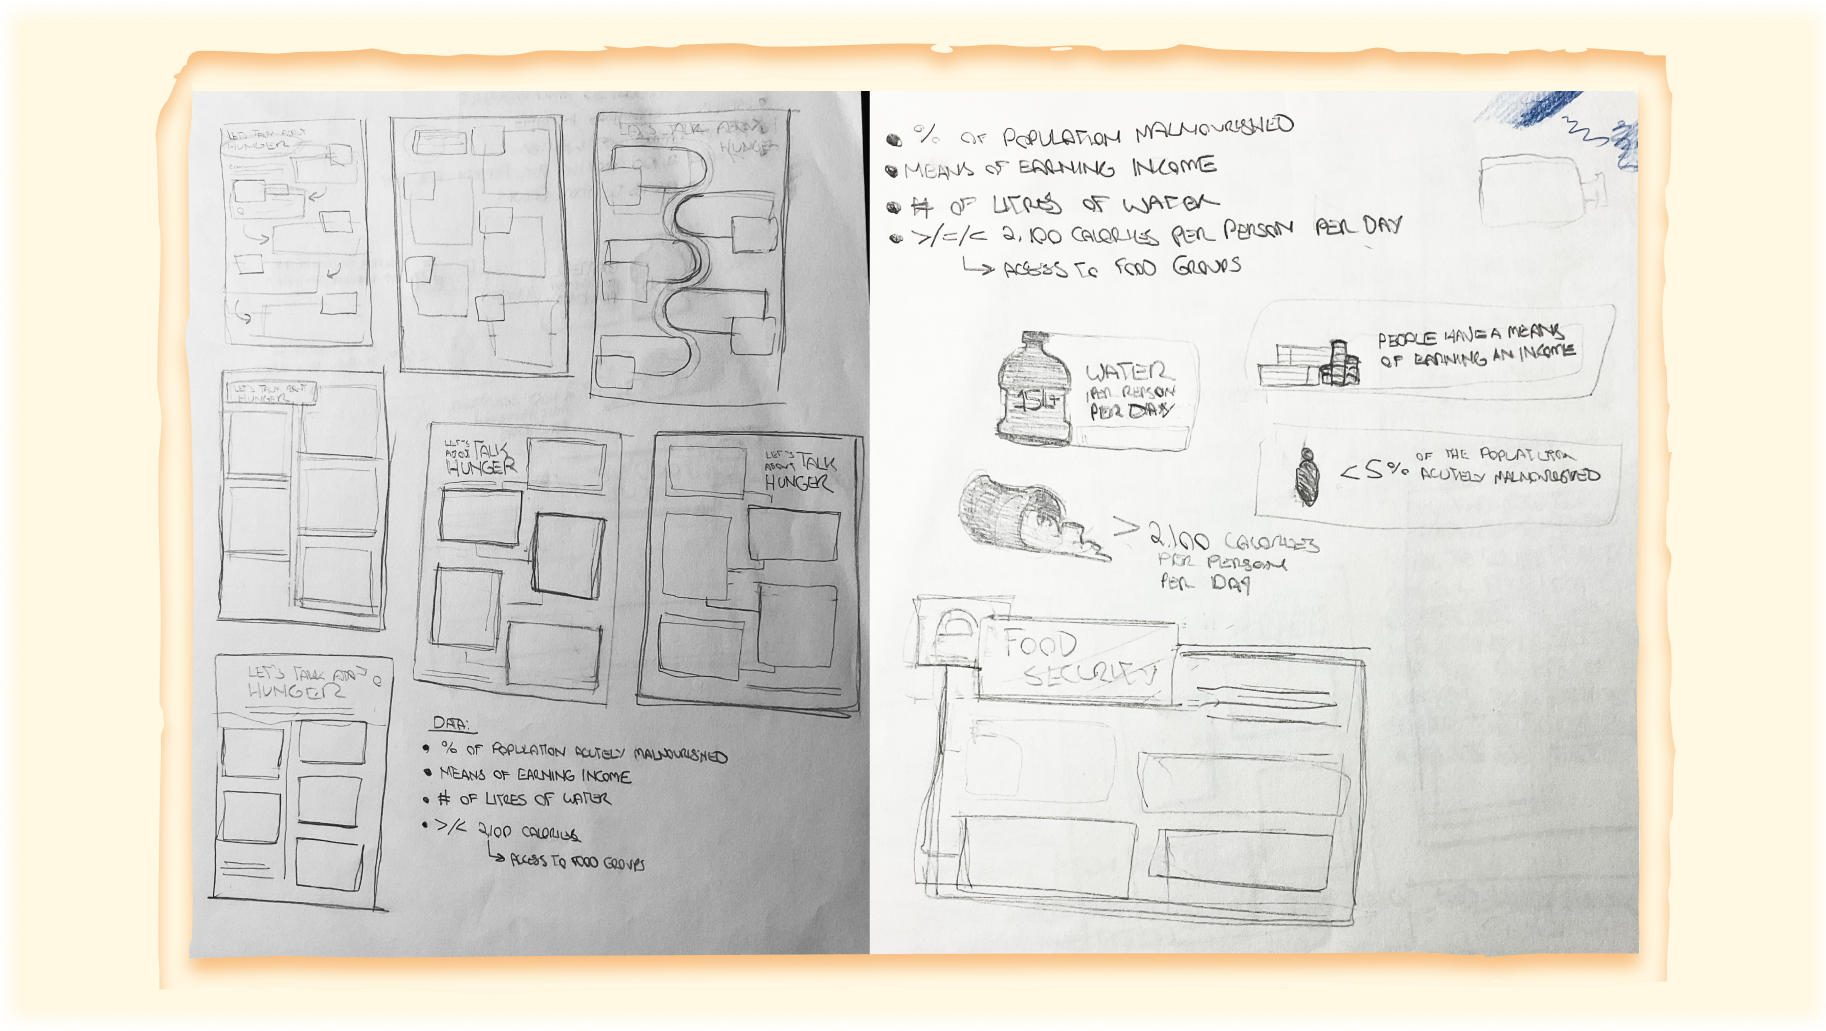 LET'S TALK ABOUT
HUNGER
LET'S TALK ABOUT
HUNGER
LET'S TALK ABOUT
HUNGER
LET'S
ABOUT TALK
HUNGER
LET'S
ABOUT TALK
HUNGER
LET'S TALK ABOUT
HUNGER
DATA:
• % OF POPULATION ACUTELY MALNOURISHED
• MEANS OF EARNING INCOME
• # OF LITRES OF WATER
• >/< 2,100 CALORIES
↳ ACCESS TO FOOD GROUPS
• % OF POPULATION MALNOURISHED
• MEANS OF EARNING INCOME
• # OF LITRES OF WATER
• >/=/< 2,100 CALORIES PER PERSON PER DAY
↳ ACCESS TO FOOD GROUPS
15L+
WATER
PER PERSON
PER DAY
PEOPLE HAVE A MEANS
OF EARNING AN INCOME
<5% OF THE POPULATION
ACUTELY MALNOURISHED
> 2,100 CALORIES
PER PERSON
PER DAY
FOOD
SECURITY